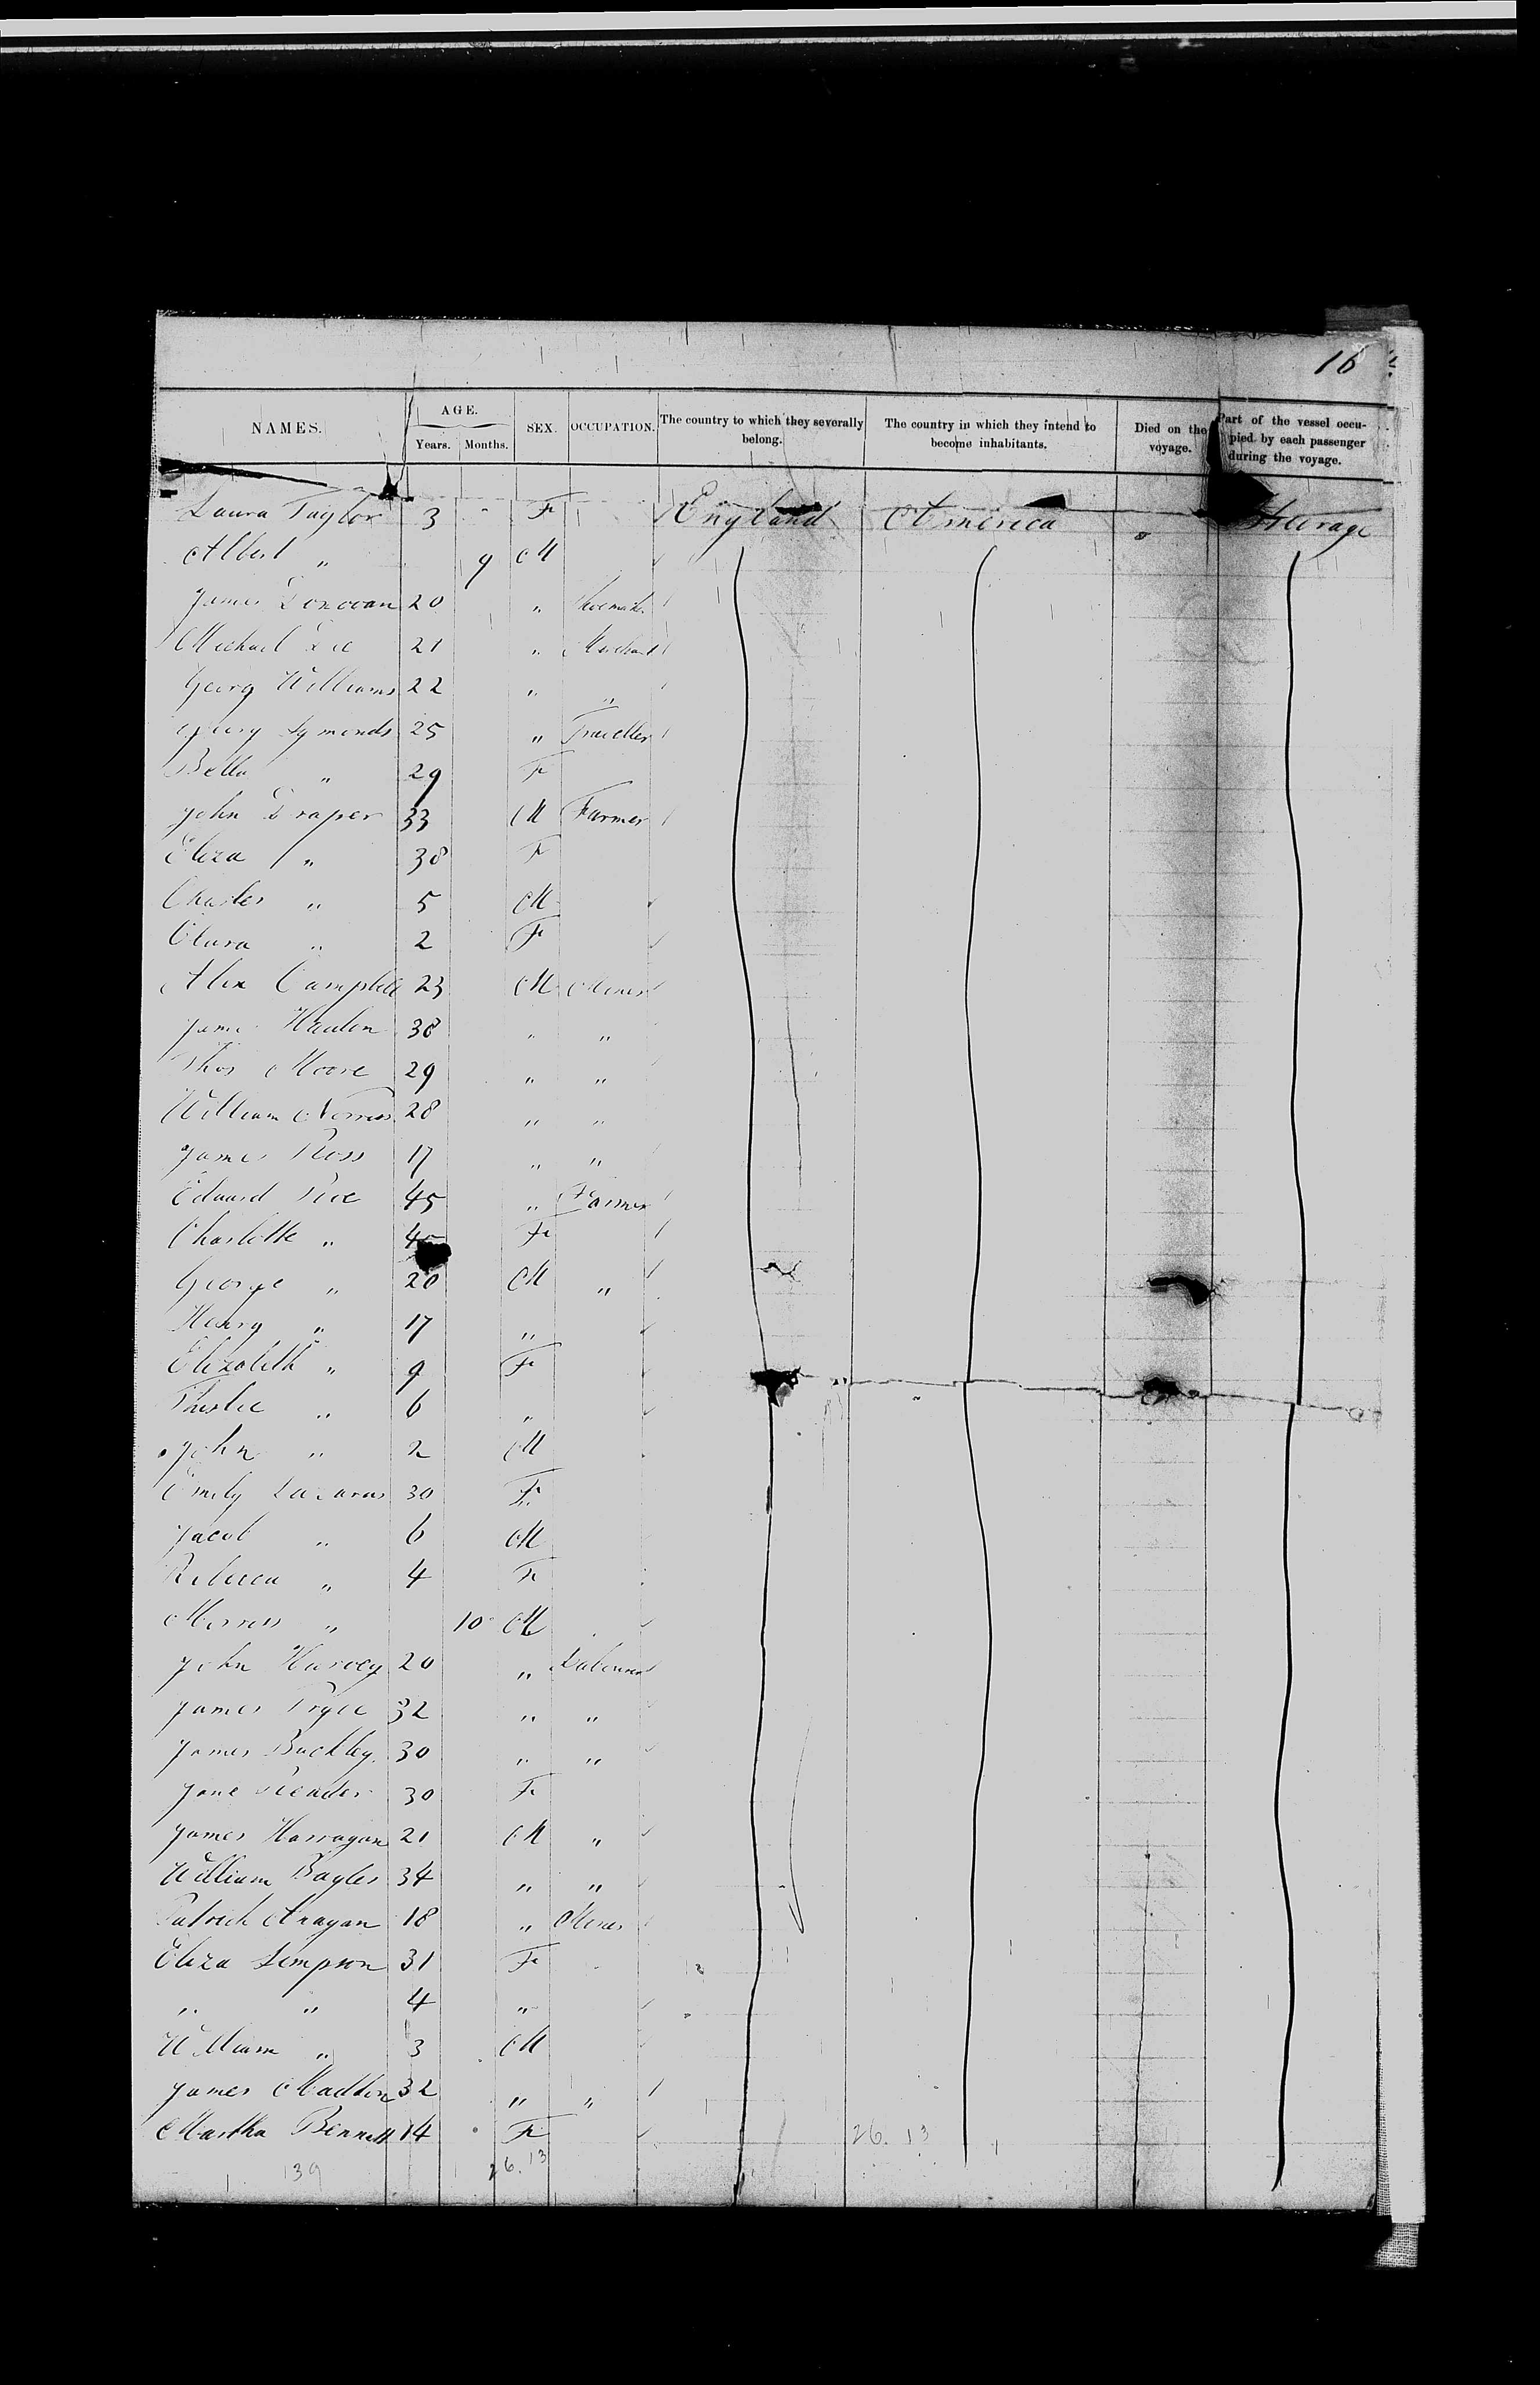 16
NAMES. AGE. Years. Months. SEX. OCCUPATION. The country to which they severally belong. The country in which they intend to become inhabitants. Died on the voyage. Part of the vessel occupied by each passenger during the voyage.
Laura Taylor 3 F England America Steerage
Albert " 9 M
James Donovan 20 " Shoemaker
Michael Lee 21 " Merchant
Georg Williams 22 " "
Georg Symonds 25 " Traveller
Bella " 29 F
John Draper 33 M Farmer
Eliza " 38 F
Charles " 5 M
Clara " 2 F
Alex Campbell 23 M Miner
James 38 " "
Thos Moore 29 " "
William Norris 28 " "
James Ross 17 " "
Edward 45 " Farmer
Charlotte " F
George " 20 M "
Henry " 17 "
Elizabeth " 9 F
" 6 "
John " 2 M
Emily Lazarus 30 F
Jacob " 6 M
Rebecca " 4 F
Morris " 10 M
John Harvey 20 " Labourer
James Pryce 32 " "
James Buckley 30 " "
Jane 30 F
James Harragan 21 M "
William Bayles 34 " "
Patrick 18 " Miner
Eliza Simpson 31 F
" " 4 "
William " 3 M
James Madden 32 " "
Martha Bennett 14 F 26.13
139 26.13